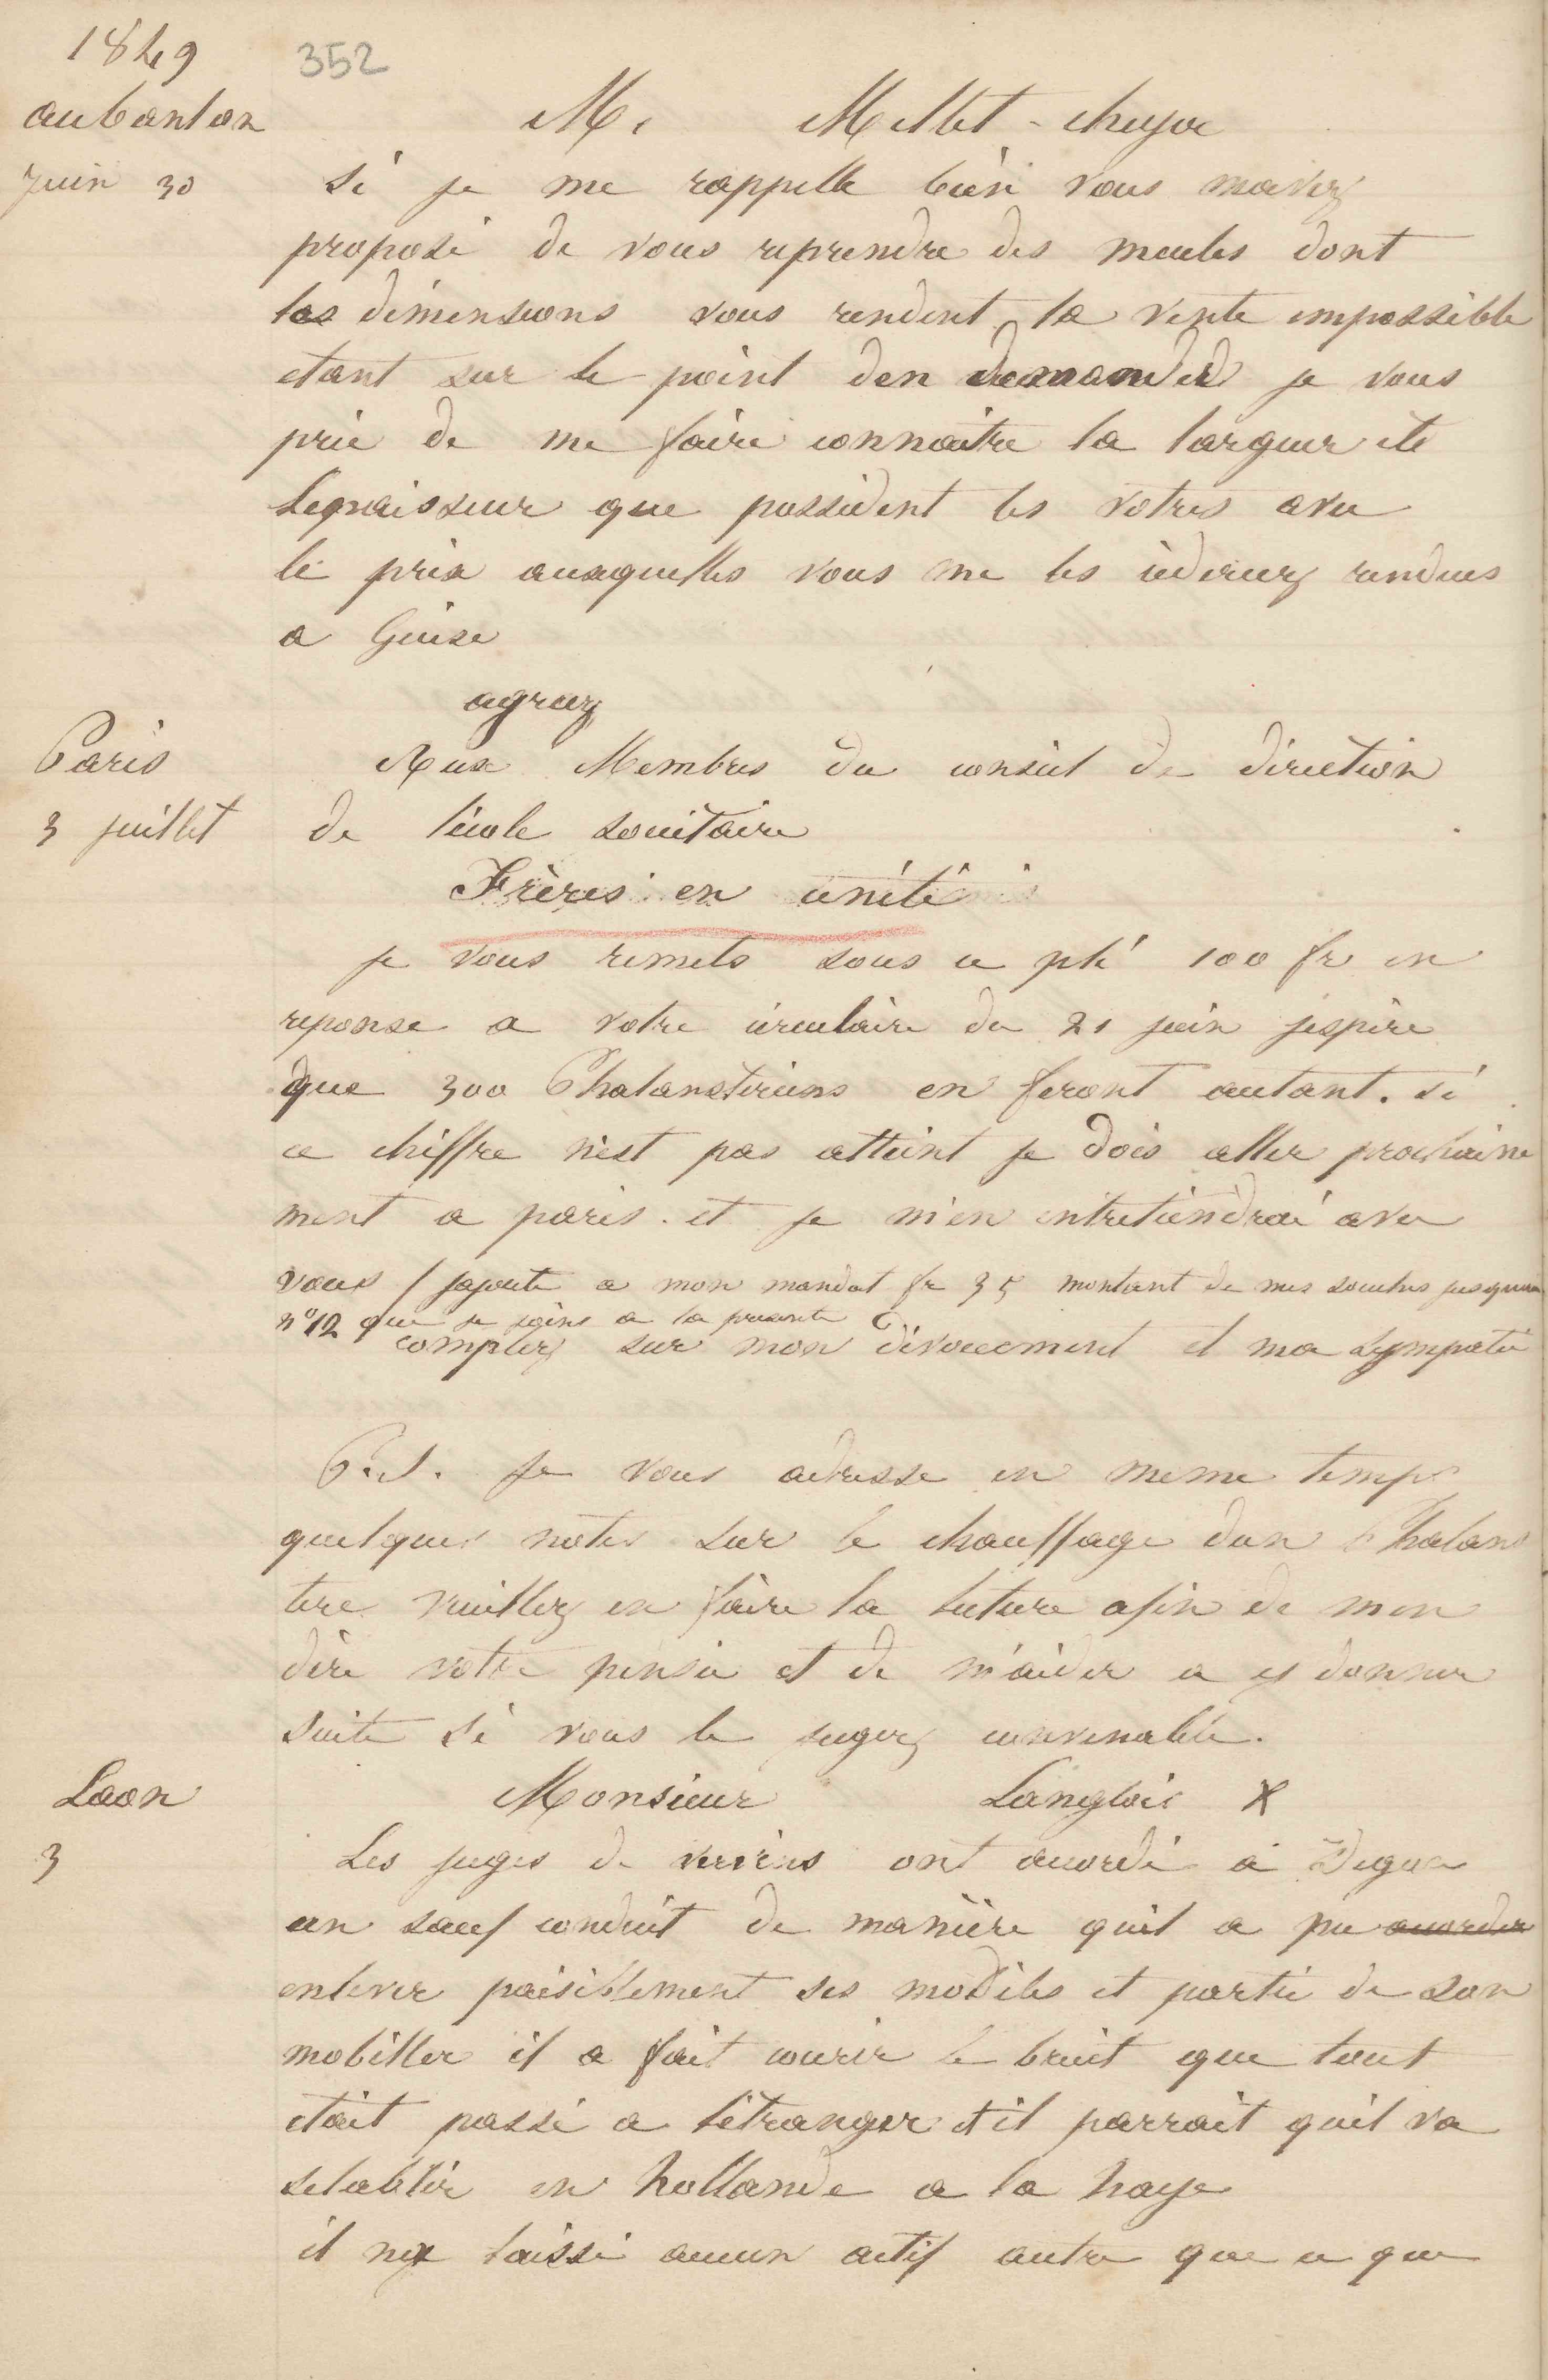 1849
352
aubanton
M. Millet-choyoe
juin 30
si je me rappelle bien vous mavez
proposé de vous reprendre des meules dont
les dimensions vous rendent la vente impossible
etant sur le point den demander je vous
prie de me faire connaitre la largeur et
lepaisseur que possèdent les votres avec
le prix auxquelles vous me les cèderiez rendues
a Guise
agreez
Paris
Aux Membres du conseil de direction
3 juillet
de lécole sociétaire
Frères en unité
je vous remets sous ce pli 100 fr en
reponse a votre circulaire du 21 juin jespère
que 300 Phalanstériens en feront autant. si
ce chiffre n'est pas atteint je dois aller prochaine
ment a paris. et je m'en entretiendrai avec
vous / jajoute a mon mandat fr 35 montant de mes souches jusquau
n° 12 que je joins a la presente
comptez sur mon dévouement et ma sympatie
P.S. Je vous adresse en meme temps
quelques notes sur le chauffage dun Phalans
tere veuillez en faire la lecture afin de men
dire votre pensée et de m'aider a y donner
suite si vous le jugez convenable.
Laon
Monsieur Langlois X
3
Les juges de vervins ont accordé a Degon
un sauf conduit de manière quil a pu accorder
enlever paisiblement ses modèles et partie de son
mobillier il a fait courir le bruit que tout
était passé a létranger et il parrait quil va
setablir en hollande a la haye
il na laissé aucun actif autre que ce que